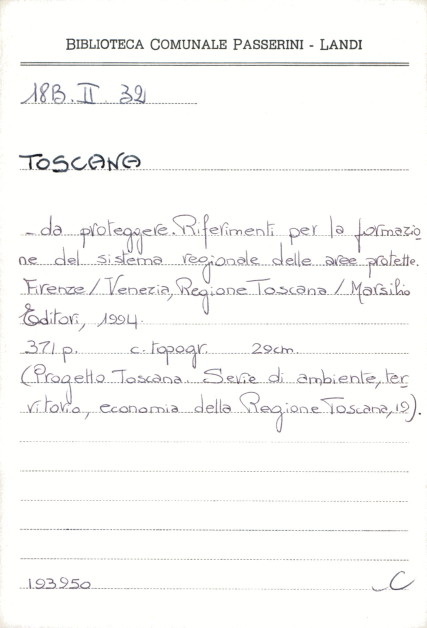 BIBLIOTECA COMUNALE PASSERINI - LANDI
18B.II.32
TOSCANA
- da proteggere. Riferimenti per la formazio
ne del sistema regionale delle aree protette.
Firenze / Venezia, Regione Toscana / Marsilio
Editori, 1994.
371 p. c. topogr. 29cm.
(Progetto Toscana. Serie di ambiente, ter-
ritorio, economia della Regione Toscana, 19).
193950 C